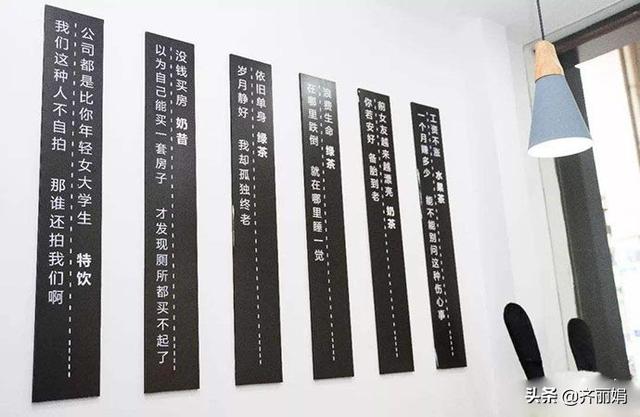 公司都是比你年轻女大学生 特饮
我们这种人不自拍 那谁还拍我们啊
没钱买房 奶昔
以为自己能买一套房子 才发现厕所都买不起了
依旧单身 绿茶
岁月静好 我却孤独终老
浪费生命 绿茶
在哪里跌倒 就在哪里睡一觉
前女友越来越漂亮 奶茶
你若安好 备胎到老
工资不涨 水果茶
一个月赚多少 能不能别问这种伤心事
头条 @齐丽娟